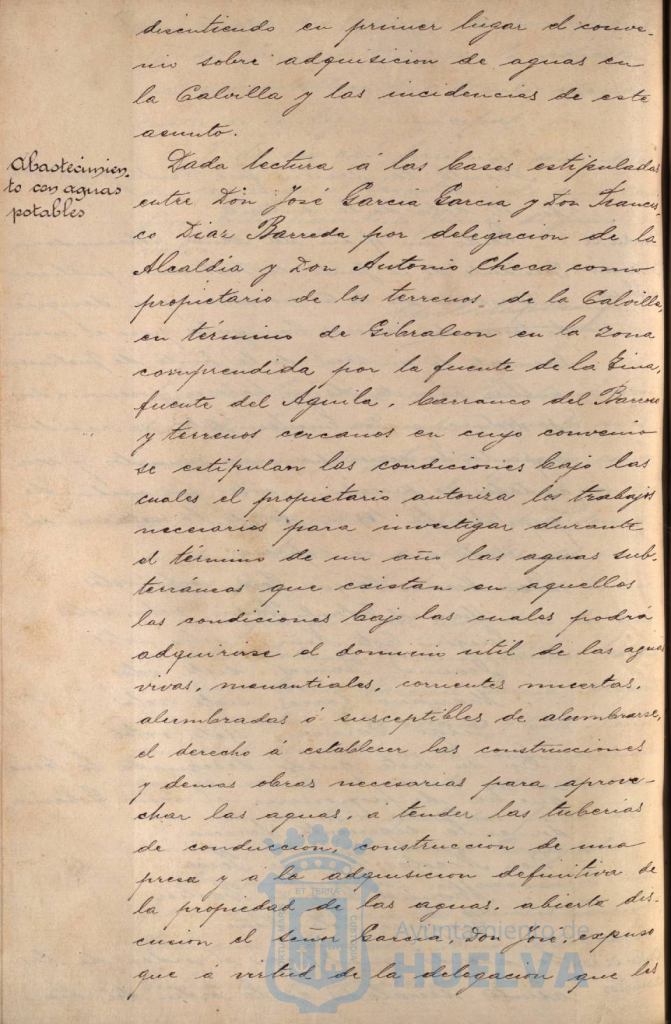 discutiendo en primer lugar el conve-
nio sobre adquisicion de aguas en
la Calvilla y las incidencias de este
asunto.
Abastecimien-
to con aguas
potables
Dada lectura á las bases estipuladas
entre Don José Garcia Garcia y Don Francis-
co Diaz Barreda por delegacion de la
Alcaldia y Don Antonio Checa como
propietario de los terrenos de la Calvilla,
en término de Gibraleon en la zona
comprendida por la fuente de la
fuente del Aguila, barranco del
y terrenos cercanos en cuyo convenio
se estipulan las condiciones bajo las
cuales el propietario autoriza los trabajos
necesarios para investigar durante
el término de un año las aguas sub-
terráneas que existan en aquellos
las condiciones bajo las cuales podrá
adquirirse el dominio util de las aguas
vivas, manantiales, corrientes muertas,
alumbradas ó susceptibles de alumbrarse,
el derecho á establecer las construcciones
y demas obras necesarias para aprove-
char las aguas, á tender las tuberias
de conduccion, construccion de una
presa y a la adquisicion definitiva de
la propiedad de las aguas, abierta dis-
cusion el señor Garcia, Don José, expuso
que á virtud de la delegacion que les
Ayuntamiento de
HUELVA